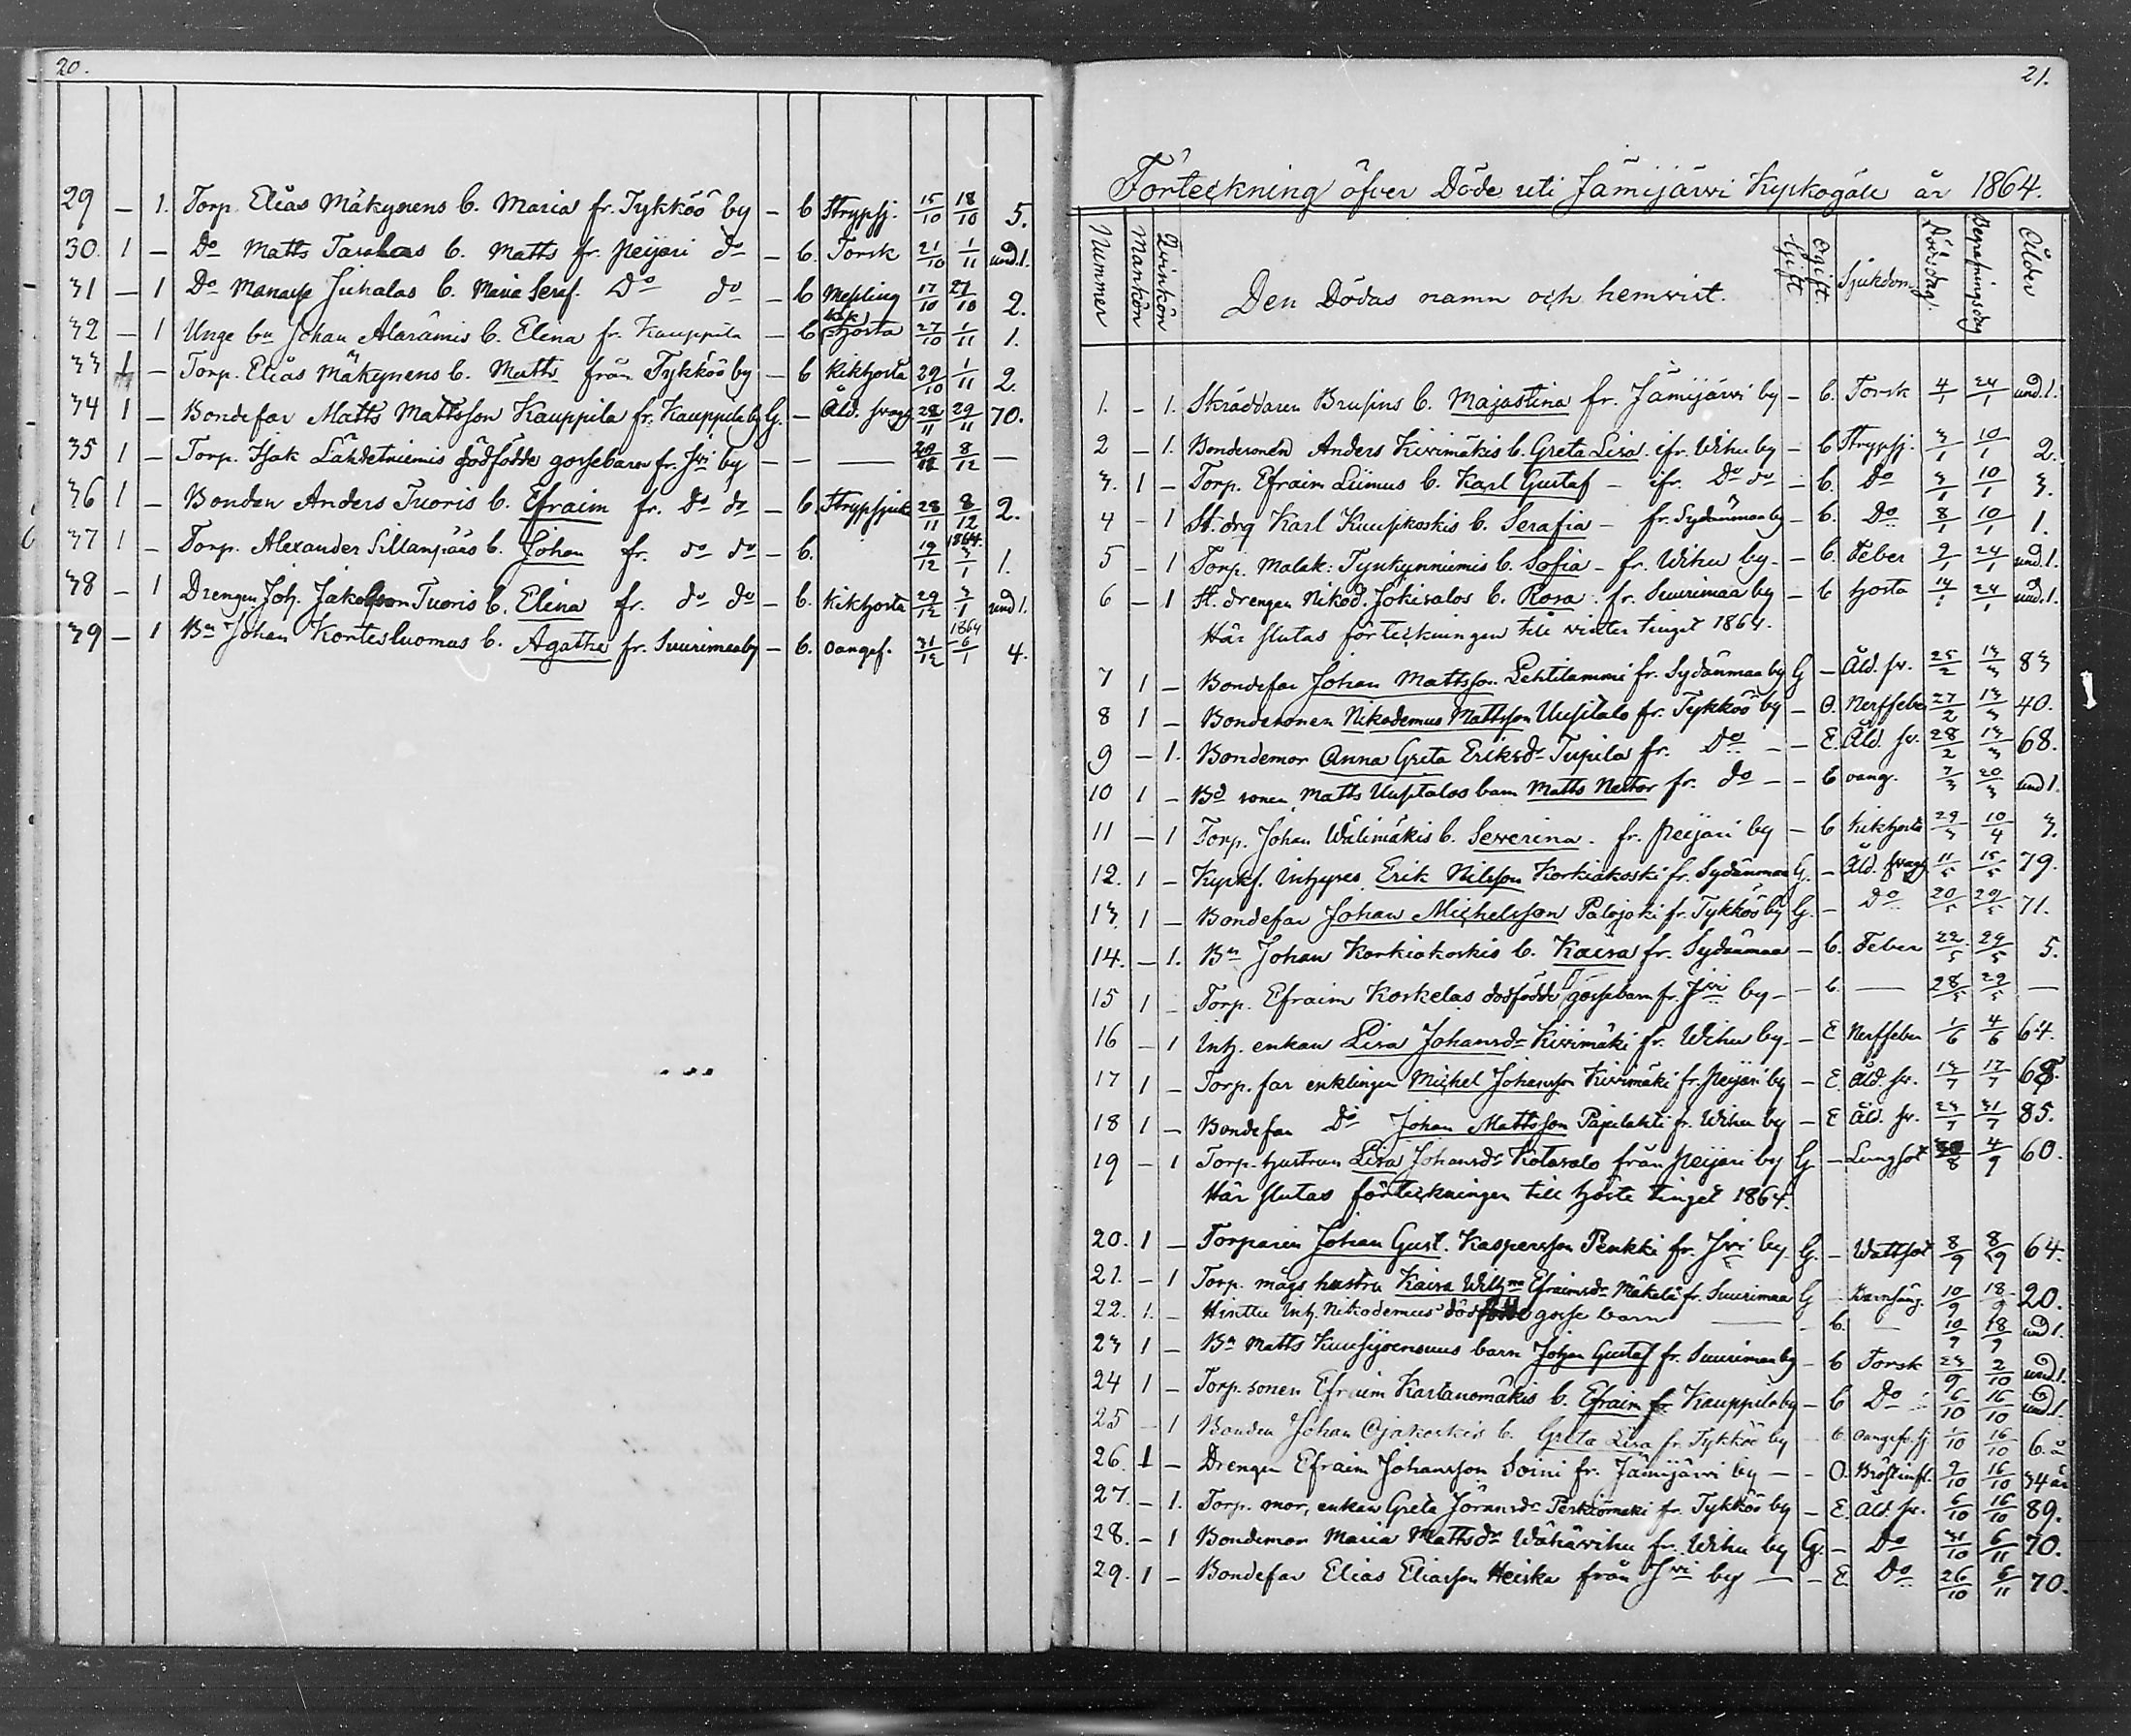 20.
29 – 1. Torp. Elias Mäkynens b. Maria fr. Tykköö by – b Strypsj. 15/10 18/10 5.
30. 1 – Do Matts b. Matts fr. Peijari do – b. Torsk 21/10 1/11 und. 1.
31 – 1 Do Manasse Juhalas b. Maria Seraf. Do do – b Messling 17/10 27/10 2.
32 – 1 Unge bn Johan Alarämis b. Elina fr. Kauppila – b hosta 27/10 1/11 1.
33 1 – Torp. Elias Mäkynens b. Matts från Tykköö by – b Kikhosta 29/10 1/11 2.
34 1 – Bondefar Matts Mattsson Kauppila fr. Kauppila by G. – Åld. svagh 28/11 29/11 70.
35 1 – Torp. Isak Lähdetniemis dödfödde gossebarn fr. Jvi by – – — 8/12 —
36 1 – Bonden Anders Tuoris b. Efraim fr. do do – b. Strypsjuk 28/11 8/12 2.
37 1 – Torp. Alexander Sillanpääs b. Johan fr. do do – b. 19/12 1864. 3/1 1.
38 – 1 Drengen Joh. Jakobsson Tuoris b. Elina fr. do do – b. Kikhosta 29/12 3/1 und 1.
39 – 1 Bn Johan Kontesluomas b. Agatha fr. Suurimaa by – b. oangef. 31/12 1864 6/1 4.
21.
Förteckning öfver Döde uti Jämijärvi Kyrkogäll år 1864.
Nummer Mankön Qvinkön Den Dödas namn och hemvist. Gift Ogift. Sjukdom Dödsdag. Begrafningsdag Ålder
1. – 1. Skräddaren Brusins b. Majastina fr. Jämijärvi by – b. Torsk 4/1 24/1 und. 1.
2 – 1. Bondesonen Anders Kivimäkis b. Greta Lisa ifr. Wihu by – b Strypsj. 3/1 10/1 2.
3. 1 – Torp. Efraim Liimus b. Karl Gustaf – ifr. Do do – b. Do 3/1 10/1 3.
4 – 1 St. drg Karl Kuuskoskis b. Serafia – fr. Sydänmaa by – b. Do 8/1 10/1 1.
5 – 1 Torp. Malak. Tynkynniemis b. Sofia – fr. Wihu by – – b. Feber 9/1 24/1 und. 1.
6 – 1 St. drengen Nikod. Jokisalos b. Rosa fr. Suurimaa by – b hosta 14/1 24/1 und. 1.
Här slutas förteckningen till vinter tinget 1864.
7 1 – Bondefar Johan Mattsson Lehtilammi fr. Sydänmaa by G – Åld. sv. 25/2 13/3 83
8 1 – Bondesonen Nikodemus Mattsson Uusitalo fr. Tykköö by – O. Nerffeber 27/2 13/3 40.
9 – 1. Bondemor Anna Greta Eriksdr Tupila fr. Do – – E. Åld. sv. 28/2 13/3 68.
10 1 – Bd sonen Matts Uusitalos barn Matts Nestor fr. do – – b oang. 7/3 20/3 und 1.
11 – 1 Torp. Johan Wälimäkis b. Severina. fr. Peijari by – b Kikhosta 29/3 10/4 3.
12. 1 – Kyrkf. Inhyses Erik Nilsson Korkiakoski fr. Sydänmaa G. – Åld. svagh 11/5 15/5 79.
13. 1 – Bondefar Johan Michelsson Palojoki fr. Tykköö by G. – Do 20/5 29/5 71.
14. – 1. Bn Johan Korkiakoskis b. Kaisa fr. Sydänmaa – b. Feber 22/5 29/5 5.
15 1 – Torp. Efraim Koskelas dödfödde gossebarn fr. Jvi by – – b. — 28/5 29/5 —
16 – 1 Inh. enkan Lisa Johansdr Kivimäki fr. Wihu by – – E Nerffeber 1/6 4/6 64.
17 1 – Torp. far enklingen Michel Johansson Kivimäki fr. Peijari by – E. Åld. sv. 13/7 17/7 68.
18 1 – Bondefar Do Johan Mattsson Papilahti fr. Wihu by – E Åld. sv. 23/7 31/7 85.
19 – 1 Torp. hustrun Lisa Johansdr Kotasalo från Peijari by G – Lungsot 30/8 4/9 60.
Här slutas förteckningen till höste tinget 1864.
20. 1 – Torparen Johan Gust. Kaspersson Penkki fr. Jvi by. G. – Wattsot 8/9 8/9 64.
21. – 1 Torp. mågs hustru Kaisa Wilhna Efraimsdr Mäkelä fr. Suurimaa G – Barnsäng. 10/9 18/9 20.
22. 1. – Hinttu Inh. Nikodemus dödfödde gosse barn — – b. — 10/9 18/9 und 1.
23 1 – Bn Matts Kuusijoensuus barn Johan Gustaf fr. Suurimaa by – b Torsk 23/9 2/10 und. 1.
24 1 – Torp. sonen Efraim Kartanomäkis b. Efraim fr Kauppila by – b Do 6/10 16/10 und. 1.
25 – 1 Bonden Johan Ojakoskis b. Greta Lisa fr. Tykköö by – b. oangef. sj. 1/10 16/10 6. å
26. 1 – Drengen Efraim Johansson Soini fr. Jämijärvi by – – O. Bröstinfl. 9/10 16/10 34 år
27. – 1. Torp. mor, enkan Greta Jöransdr Perkiömäki fr. Tykköö by – E. Åld. sv. 6/10 16/10 89.
28. – 1 Bondemor Maria Mattsdr Wähäwihu fr. Wihu by G. – Do 31/10 6/11 70.
29. 1 – Bondefar Elias Eliasson Heiska från Jvi by – – E. Do 26/10 6/11 70.